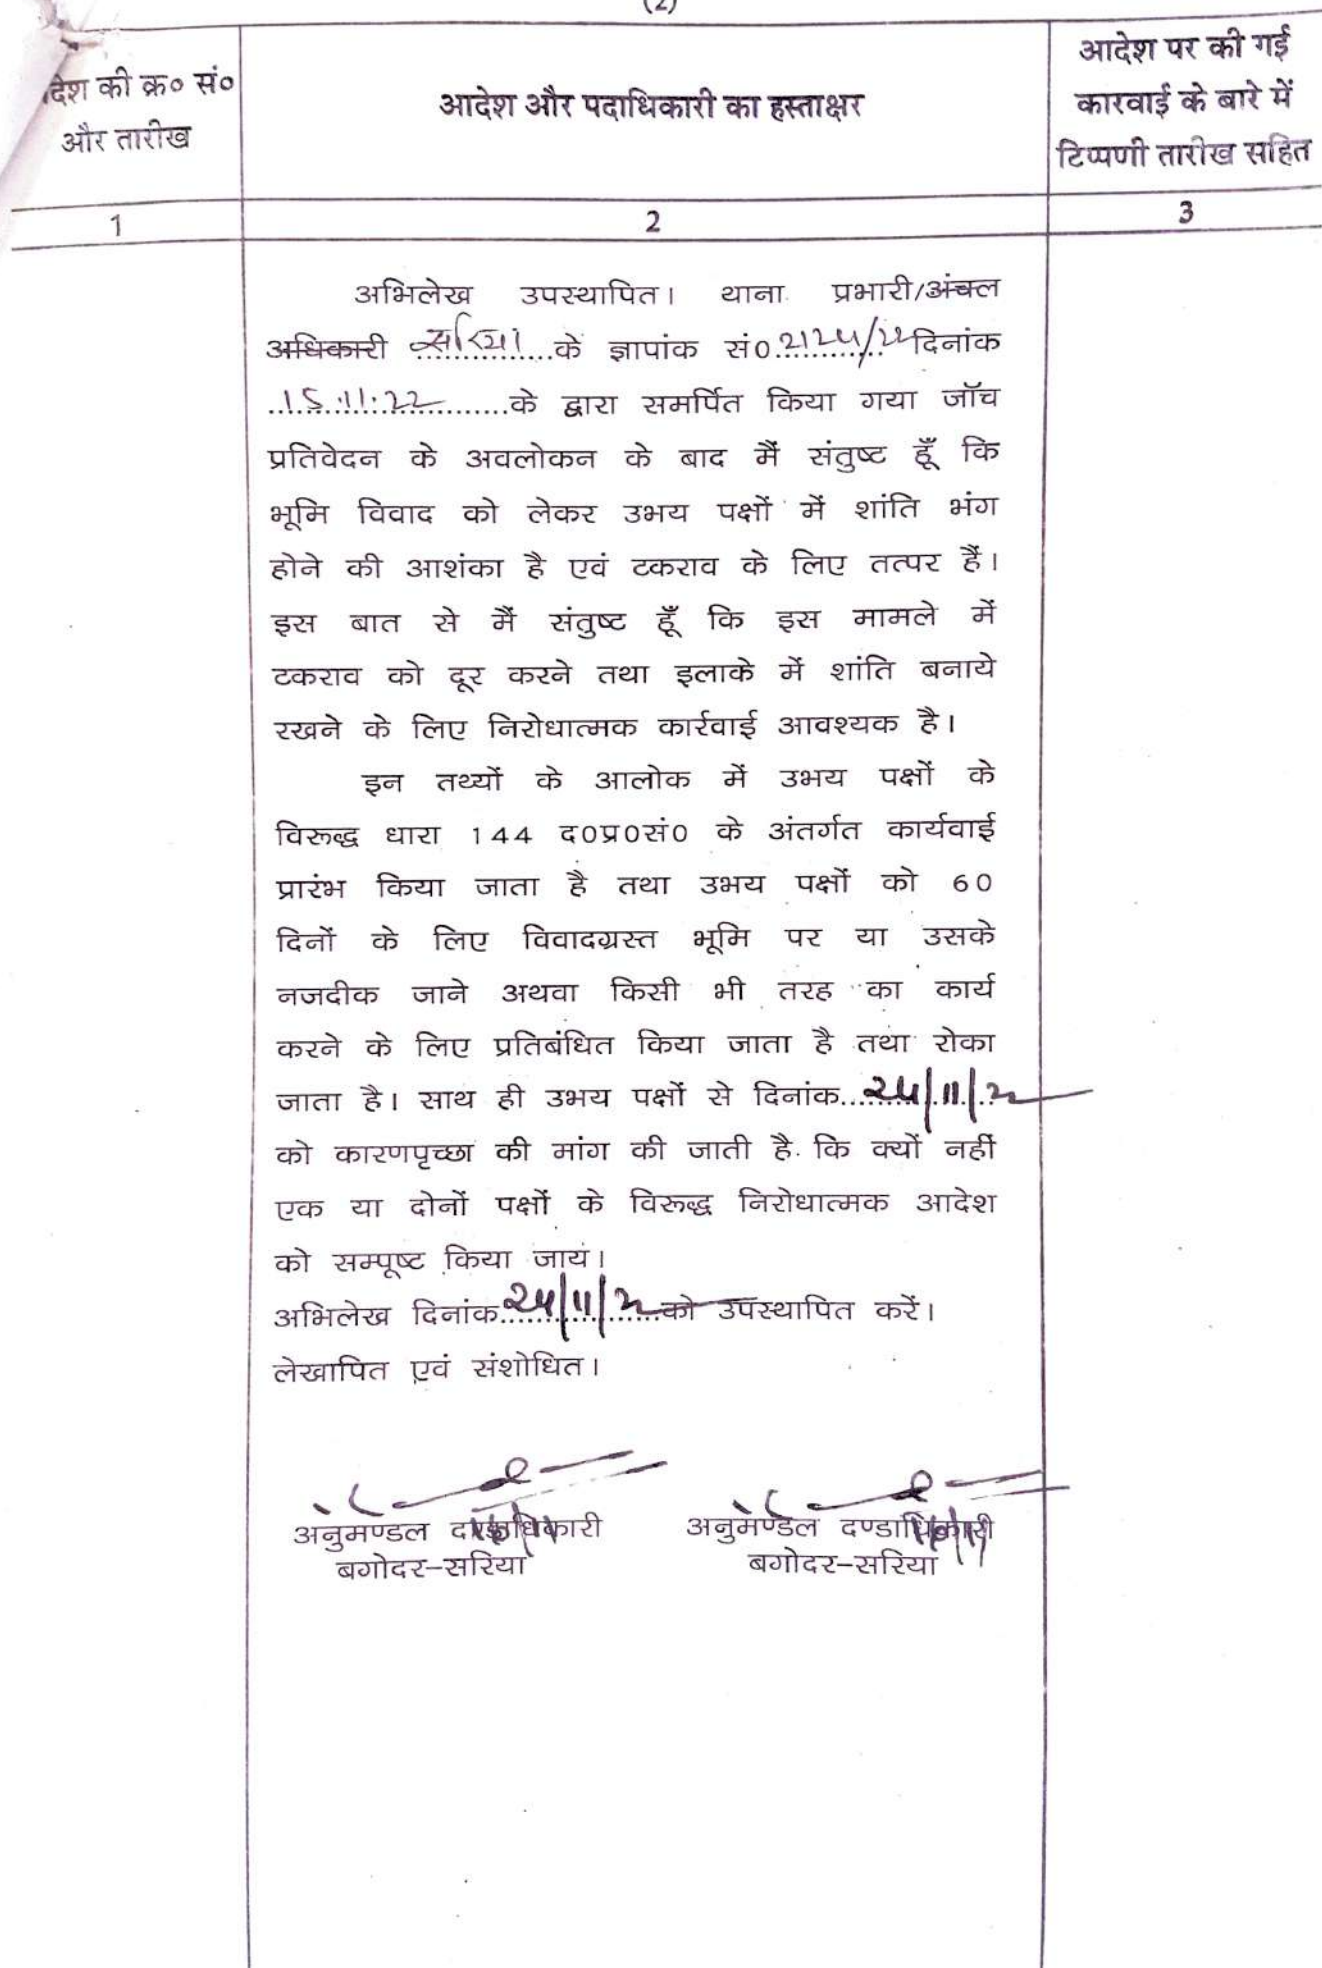 (2)
देश की क्र० सं०
और तारीख
आदेश और पदाधिकारी का हस्ताक्षर
आदेश पर की गई
कारवाई के बारे में
टिप्पणी तारीख सहित
1
2
3
अभिलेख उपस्थापित। थाना प्रभारी/अंचल
अधिकारी सरिया के ज्ञापांक सं0 दिनांक
15.11.22 के द्वारा समर्पित किया गया जॉच
प्रतिवेदन के अवलोकन के बाद मैं संतुष्ट हूँ कि
भूमि विवाद को लेकर उभय पक्षों में शांति भंग
होने की आशंका है एवं टकराव के लिए तत्पर हैं।
इस बात से मैं संतुष्ट हूँ कि इस मामले में
टकराव को दूर करने तथा इलाके में शांति बनाये
रखने के लिए निरोधात्मक कार्रवाई आवश्यक है।
इन तथ्यों के आलोक में उभय पक्षों के
विरूद्ध धारा 144 द0प्र0सं0 के अंतर्गत कार्यवाई
प्रारंभ किया जाता है तथा उभय पक्षों को 60
दिनों के लिए विवादग्रस्त भूमि पर या उसके
नजदीक जाने अथवा किसी भी तरह का कार्य
करने के लिए प्रतिबंधित किया जाता है तथा रोका
जाता है। साथ ही उभय पक्षों से दिनांक
को कारणपृच्छा की मांग की जाती है कि क्यों नहीं
एक या दोनों पक्षों के विरूद्ध निरोधात्मक आदेश
को सम्पूष्ट किया जाय।
अभिलेख दिनांक को उपस्थापित करें।
लेखापित एवं संशोधित।
अनुमण्डल दण्डाधिकारी
बगोदर–सरिया
अनुमण्डल दण्डाधिकारी
बगोदर–सरिया